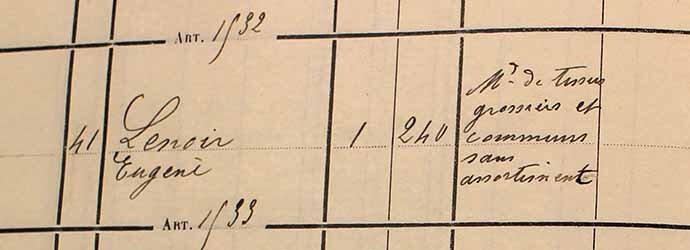 ART. 1532
41 Lenoir 1 240 Md de tissus
Eugène grossiers et
communs
sans
assortiment
ART. 1533